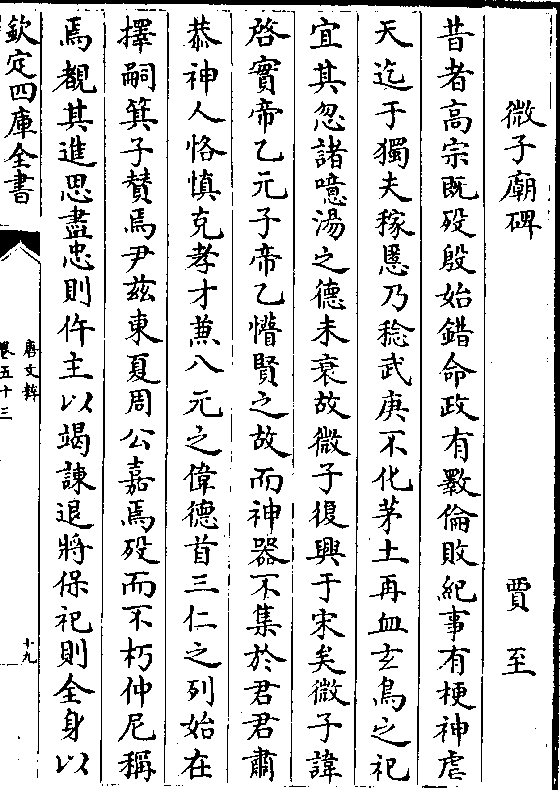 微子廟碑　賈至
昔者高宗既歿殷始錯命政有斁倫敗紀事有梗神虐
天迄于獨夫稼慝乃稔武庚不化茅土再血玄鳥之祀
宜其忽諸噫湯之德未衰故微子復興于宋矣微子諱
啓實帝乙元子帝乙懵賢之故而神器不集於君君肅
恭神人恪慎克孝才兼八元之偉德首三仁之列始在
擇嗣箕子賛焉尹茲東夏周公嘉焉歿而不朽仲尼稱
焉覩其進思盡忠則仵主以竭諫退將保祀則全身以
欽定四庫全書
唐文粹
卷五十三
十九